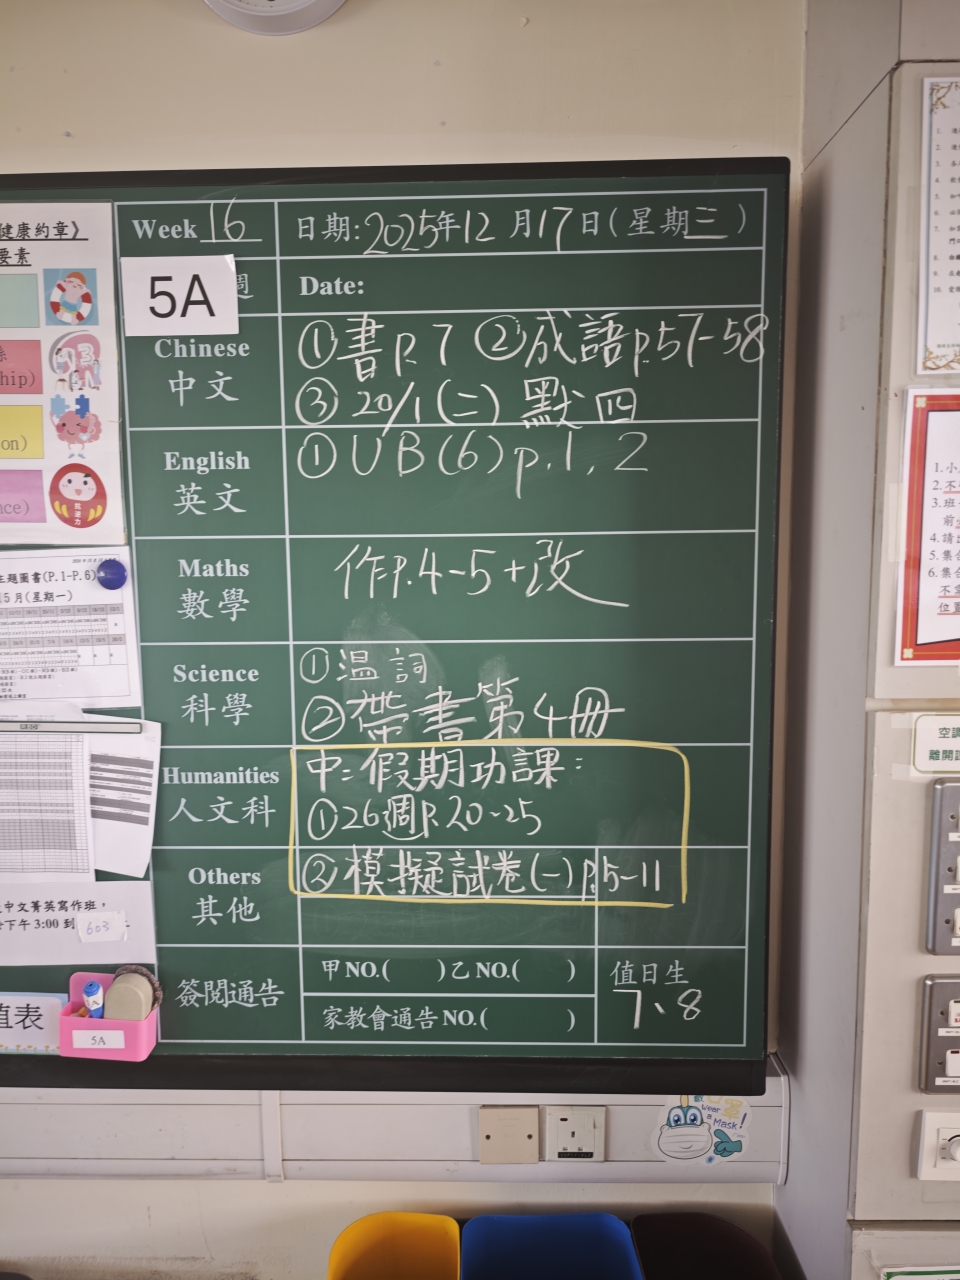 健康約章》
要素
hip)
on)
nce)
主題圖書(P.1-P.6)
5月(星期一)
中文菁英寫作班，
下午 3:00 到
603
值表
5A
Week 16
日期:2025年12月17日(星期三)
5A
週
Date:
Chinese
中文
①書p.7 ②成語p.57-58
③20/1(二) 默四
English
英文
①UB(6)p.1,2
Maths
數學
作p.4-5+改
Science
科學
①温詞
②帶書第4冊
Humanities
人文科
中:假期功課:
①26週p.20-25
Others
其他
②模擬試卷(一)p.5-11
簽閱通告
甲 NO.( )乙 NO.( )
家教會通告 NO.( )
值日生
7、8
Wear
a
Mask!
1.小
2.不
3.班
前
4.請
5.集合
6.集合
不
位置
空調
離開